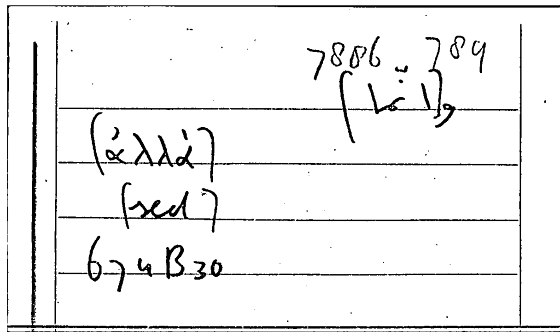 7886 - 789
[ἀλλά]
[sed]
674B30